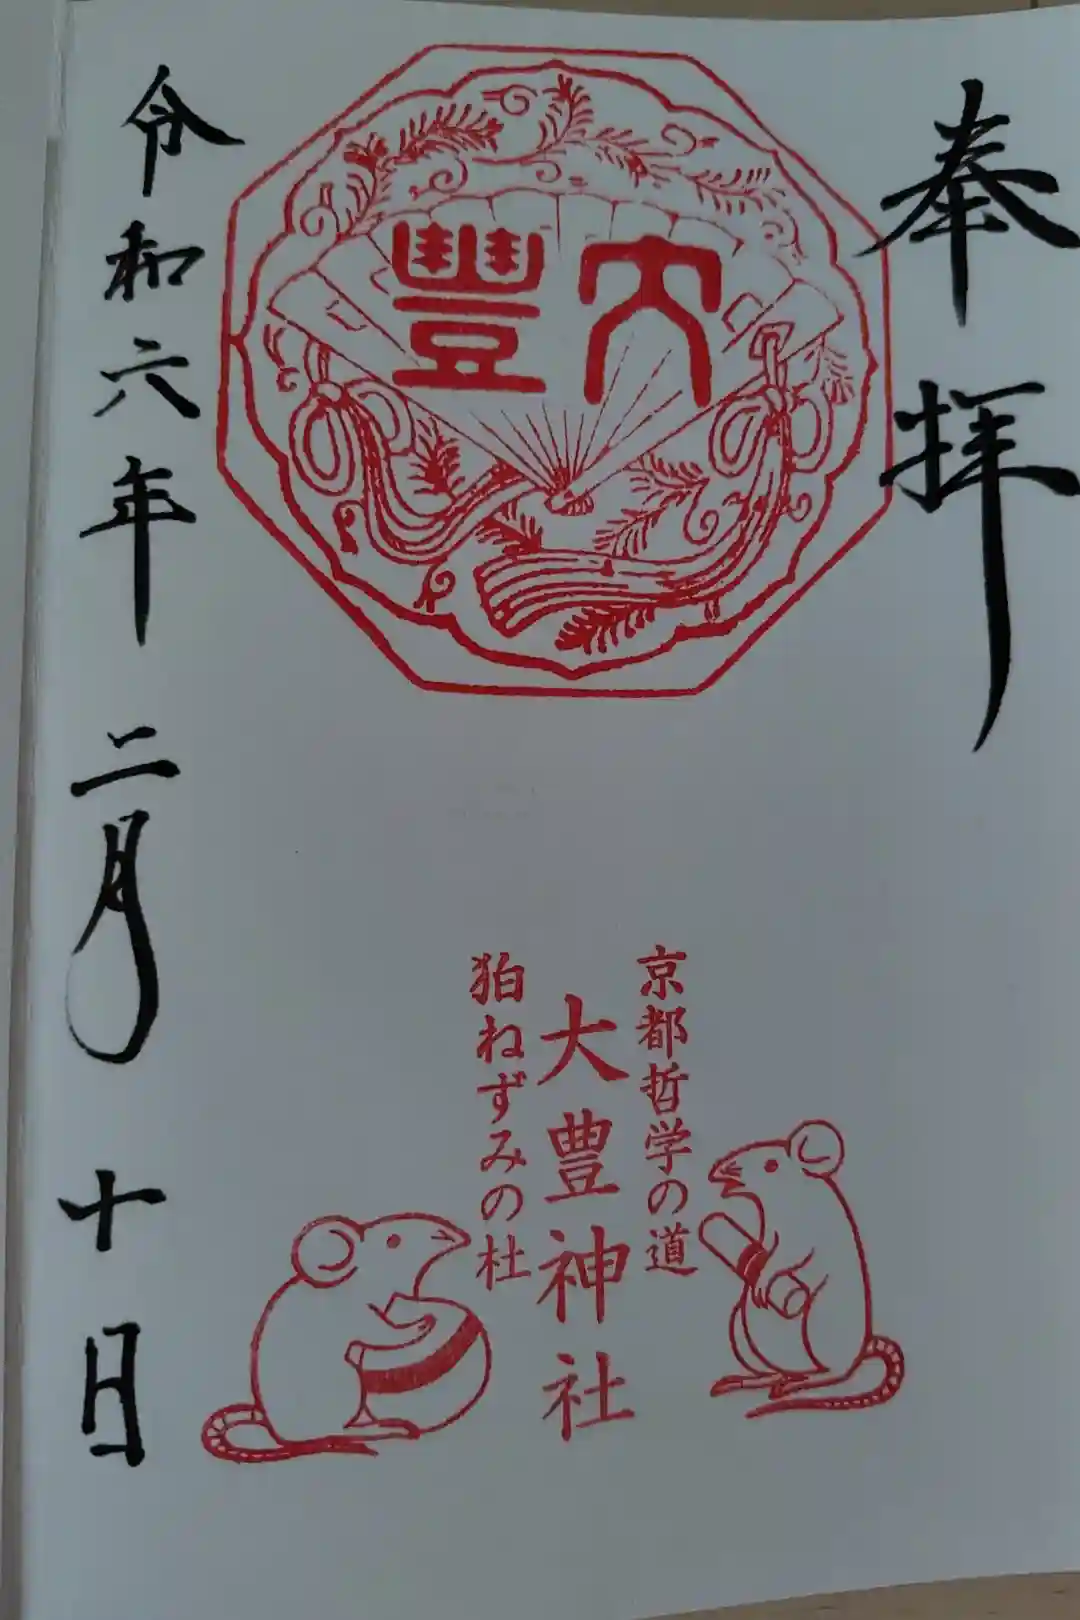 奉拝
大豐
京都哲学の道
大豊神社
狛ねずみの杜
令和六年二月十日